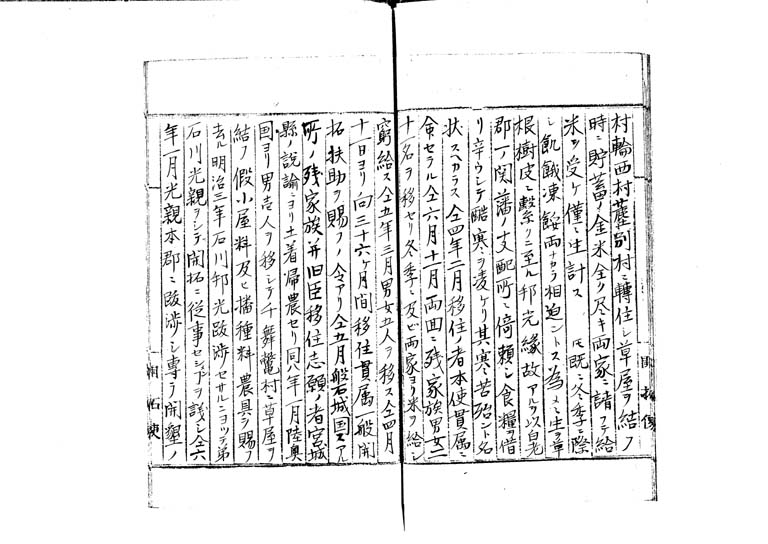 村輪西村蘑別村ニ轉住シ草屋ヲ結フ
時ニ貯蓄ノ金米全ク尽キ両家ニ請フテ給
米ヲ受ケ僅ニ生計ス 既ニ冬季ニ際
シ飢餓凍餒両ナカラ相迫ントス為メニ生ヲ草
根樹皮ニ繫クニ至ル邦光縁故アルヲ以白老
郡一ノ関藩ノ支配所ニ倚頼シ食糧借
リ辛ウシテ酷寒ヲ凌ケリ其寒苦殆ント名
状スヘカラス仝四年二月移住ノ者本使貫属ニ
命セラル仝六月十一月両回ニ残家族男女二
十名ヲ移セリ冬季ニ及ヒ両家ヨリ米ヲ給シ
窮給ス仝五年三月男女五人ヲ移ス仝四月
十日ヨリ向三十六ケ月間移住貫属一般開
拓扶助ヲ賜フノ令アリ仝五月般石城国ニアル
所ノ残家族并旧臣移住志願ノ者宮城
縣ノ説諭ニヨリ土着帰農セリ同八年一月陸奥
国ヨリ男壱人ヲ移シテ千舞鼈村ニ草屋ヲ
結フ假小屋料及ヒ播種料農具ヲ賜フ
去ル明治三年石川邦光跋渉セサルニヨツテ弟
石川光親ヲシテ開拓ニ從事セシコヲ議シ仝六
年一月光親本郡ニ跋渉シ專ラ開墾ノ
開拓使